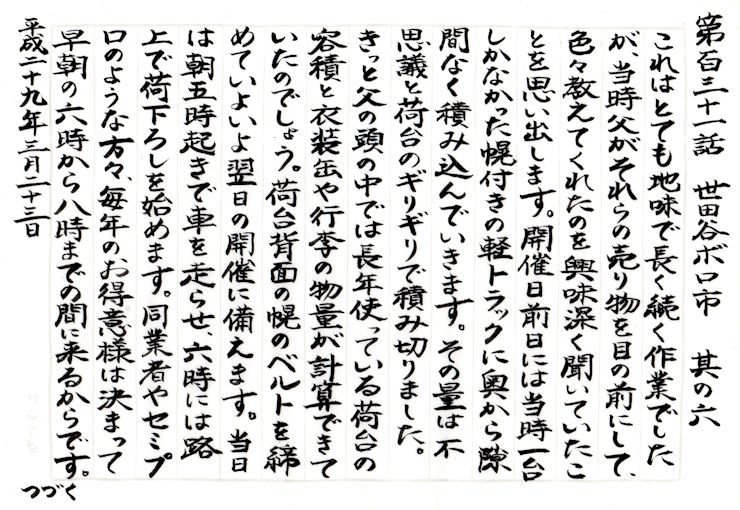 第百三十一話　世田谷ボロ市　其の六
これはとても地味で長く続く作業でした
が、当時父がそれらの売り物を目の前にして、
色々教えてくれたのを興味深く聞いていたこ
とを思い出します。開催日前日には当時一台
しかなかった幌付きの軽トラックに奥から隙
間なく積み込んでいきます。その量は不
思議と荷台のギリギリで積み切りました。
きっと父の頭の中では長年使っている荷台の
容積と衣装缶や行李の物量が計算できて
いたのでしょう。荷台背面の幌のベルトを締
めていよいよ翌日の開催に備えます。当日
は朝五時起きで車を走らせ、六時には路
上で荷下ろしを始めます。同業者やセミプ
ロのような方々、毎年のお得意様は決まって
早朝の六時から八時までの間に来るからです。
つづく
平成二十九年三月二十三日